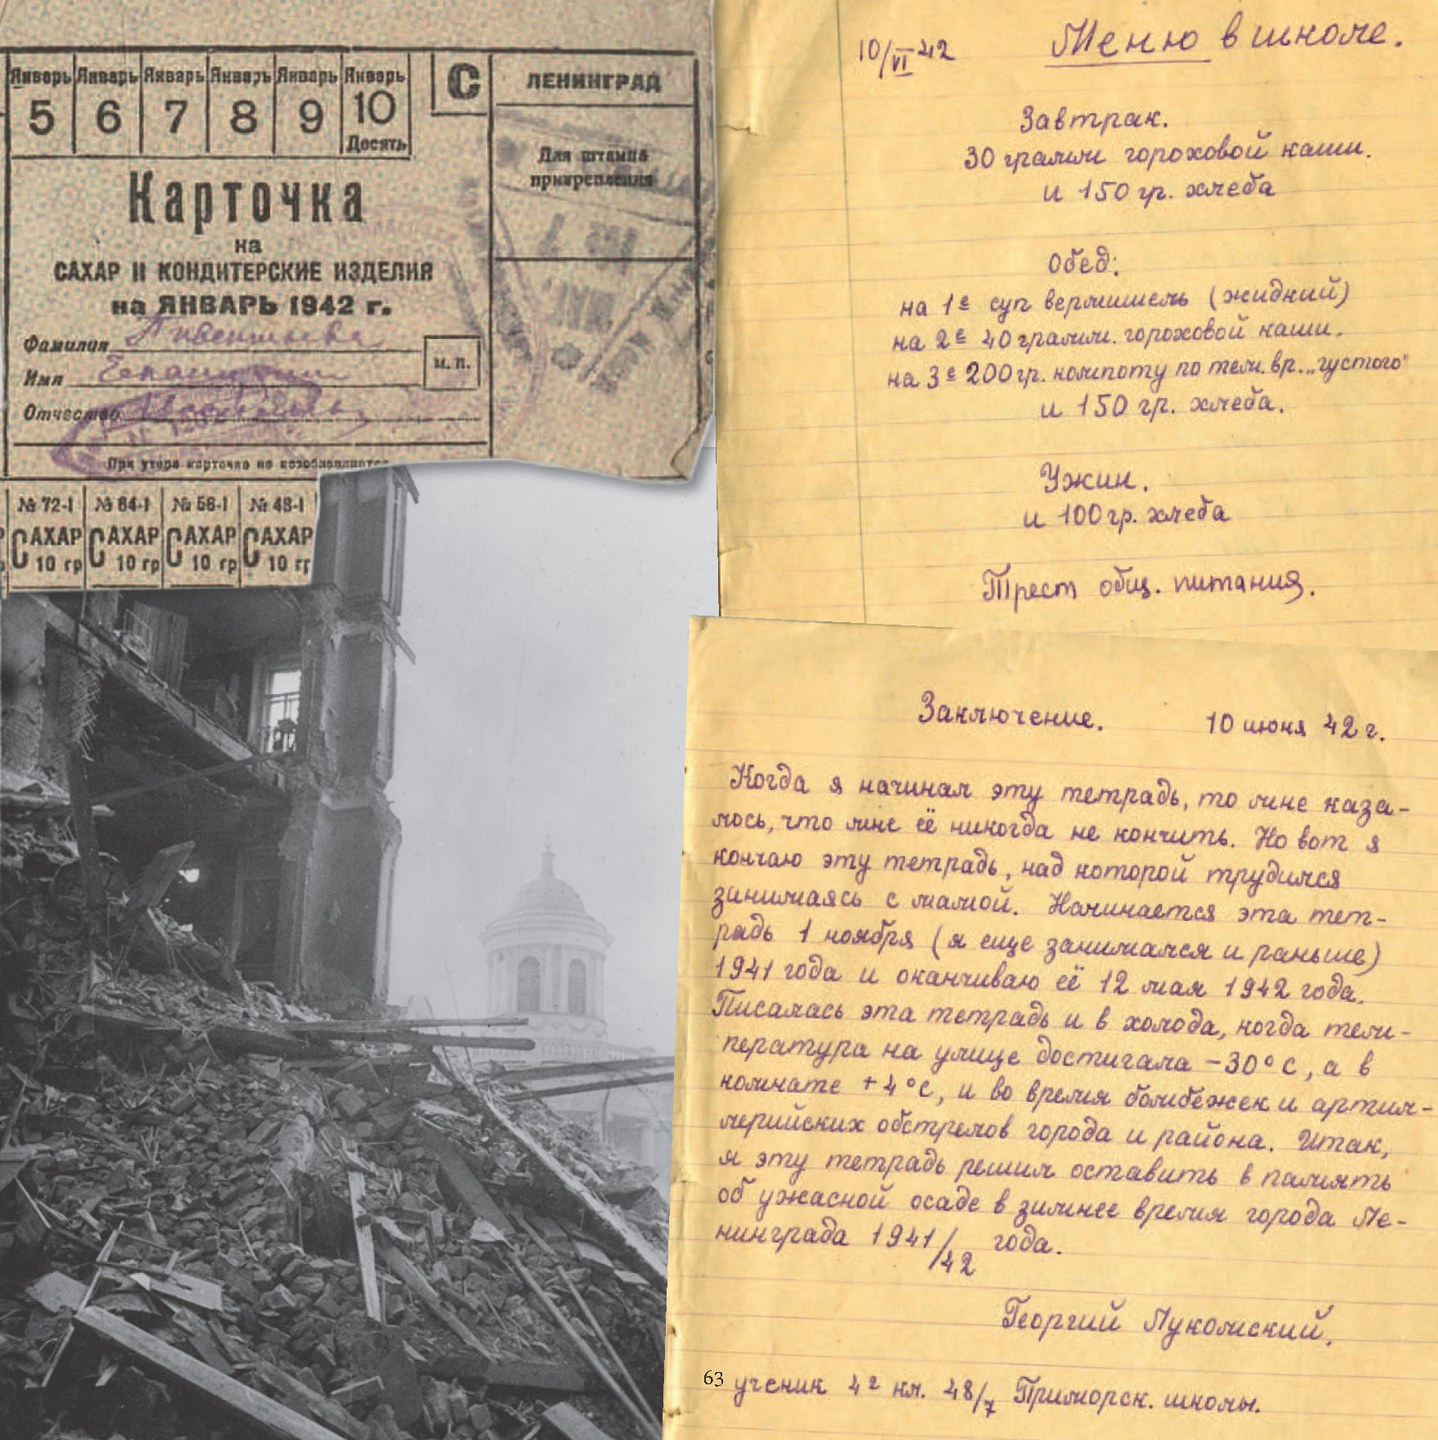 Январь Январь Январь Январь Январь Январь
5 6 7 8 9 10
Десять
С
ЛЕНИНГРАД
Для штампа
прикрепления
Карточка
на
САХАР И КОНДИТЕРСКИЕ ИЗДЕЛИЯ
на ЯНВАРЬ 1942 г.
Фамилия
Имя
М. П.
Отчество
При утере карточка не возобновляется
№ 72-I № 64-I № 56-I № 48-I
САХАР САХАР САХАР САХАР
10 гр 10 гр 10 гр 10 гр
10/VI 42 Меню в школе.
Завтрак.
30 грамм гороховой каши.
и 150 гр. хлеба
Обед:
на 1е суп вермишель (жидний)
на 2е 40 грамм. гороховой каши.
на 3е 200 гр. компоту по тем. вр. „густого"
и 150 гр. хлеба.
Ужин.
и 100 гр. хлеба
Трест общ. питания.
Заключение. 10 июня 42 г.
Когда я начинал эту тетрадь, то мне каза-
лось, что мне её никогда не кончить. Но вот я
кончаю эту тетрадь, над которой трудился
занимаясь с мамой. Начинается эта тет-
радь 1 ноября (я еще занимался и раньше)
1941 года и оканчиваю её 12 мая 1942 года.
Писалась эта тетрадь и в холода, когда тем-
пература на улице достигала -30°с, а в
комнате +4°с, и во время бомбёжек и артил-
лерийских обстрелов города и района. Итак,
я эту тетрадь решил оставить в память
об ужасной осаде в зимнее время города Ле-
нинграда 1941/42 года.
Георгий Лукомский.
63
ученик 4г кл. 48/7 Приморск. школы.